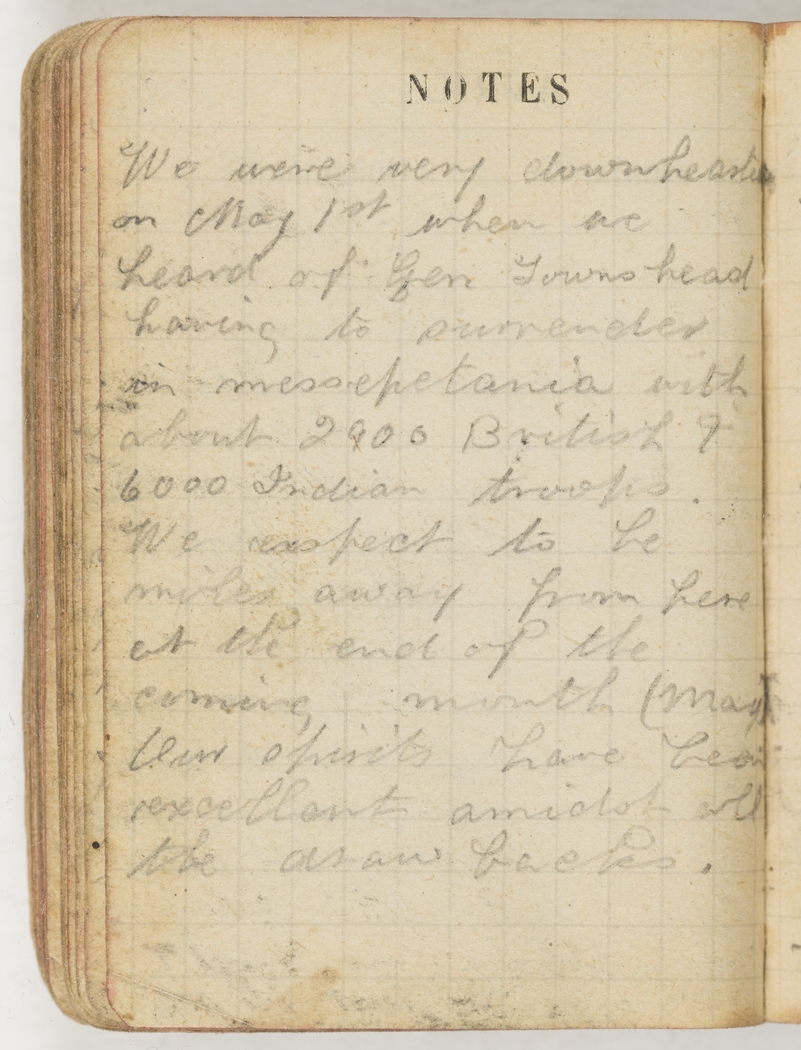 NOTES
We were very downhearted
on May 1st when we
heard of Gen Townshead
having to surrender
in messepetania with
about 2900 British &
6000 Indian troops.
We exspect to be
miles away from here
at the end of the
coming month (May)
Our spirits have been
excellant amidst all
the draw backs.